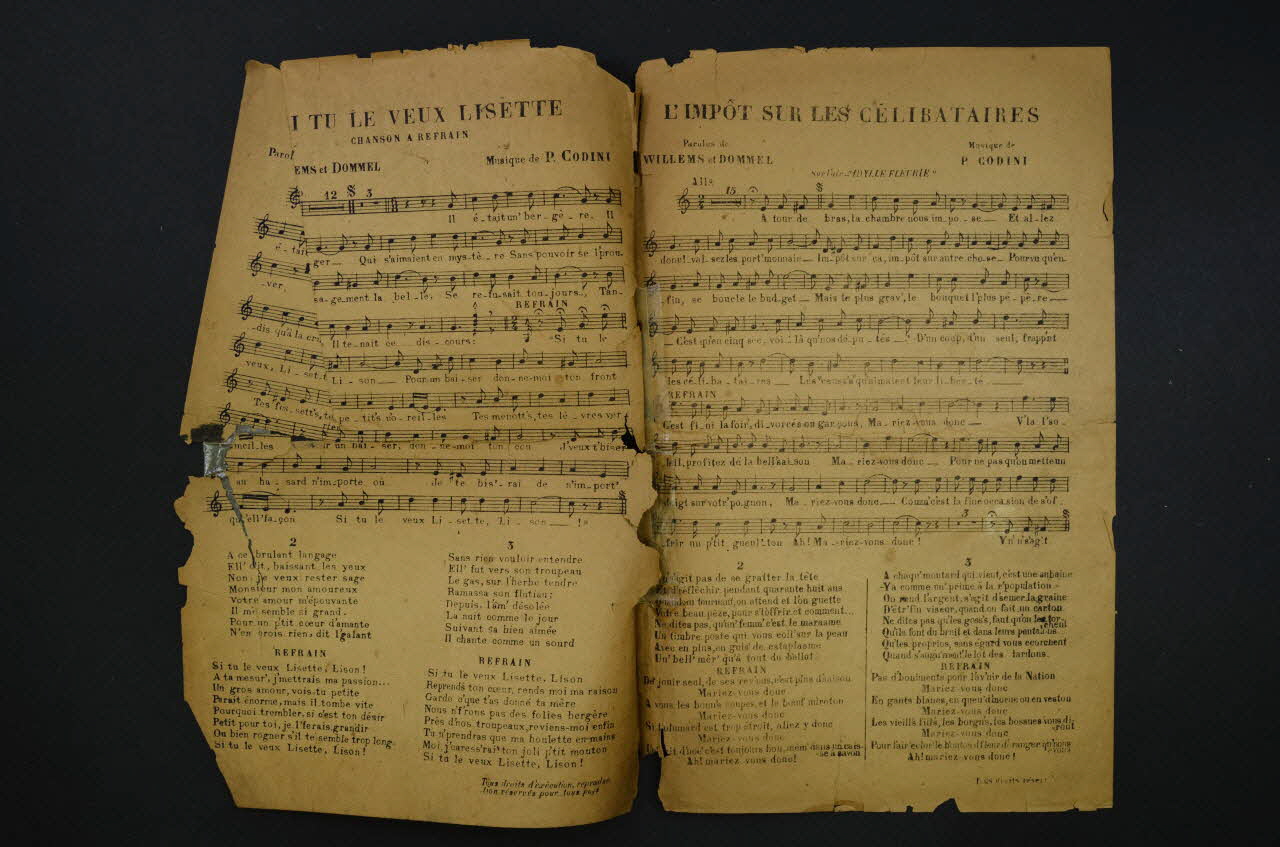 I TU LE VEUX LISETTE
CHANSON A REFRAIN
Parol
EMS et DOMMEL
Musique de P. CODINI
12 3
Il é-tait un' ber-gè-re, Il
é-tait
ger— Qui s'aimaient en mys-tè-re Sans pouvoir se l'prou-
-ver,
sa-ge-ment la bel-le, Se re-fu-sait tou-jours, Tan-
REFRAIN
-dis qu'à la
Il te-nait ce dis-cours: Si tu le
veux, Li-set-t
Li-son— Pour un bai-ser don-ne-moi ton front
Tes
pe-tit's o-reil-les Tes menott's, tes lè-vres ver
meil-les
ur un bai-ser, don-ne-moi ton cou J'veux t'biser
au ha-sard n'im-porte où Je te bis'-rai de n'im-port'
qu'ell' fa-çon Si tu le veux Li-set-te, Li-son— !
2
A ce brulant langage
Ell' dit, baissant les yeux
Non, je veux rester sage
Monsieur mon amoureux
Votre amour m'épouvante
Il me semble si grand.
Pour un p'tit cœur d'amante
N'en crois rien, dit l'galant
REFRAIN
Si tu le veux Lisette, Lison!
A ta mesur', j'mettrais ma passion...
Un gros amour, vois-tu petite
Parait énorme, mais il tombe vite
Pourquoi trembler, si c'est ton désir
Petit pour toi, je l'ferais grandir
Ou bien rogner s'il te semble trop long
Si tu le veux Lisette, Lison!
3
Sans rien vouloir entendre
Ell' fut vers son troupeau
Le gas, sur l'herbe tendre
Ramassa son flutiau;
Depuis, l'âm' désolée
La nuit comme le jour
Suivant sa bien aimée
Il chante comme un sourd
REFRAIN
Si tu le veux Lisette, Lison
Reprends ton cœur, rends moi ma raison
Garde c'que t'as donné ta mère
Nous n'frons pas des folies bergère
Près d'nos troupeaux, reviens-moi enfin
Tu n'prendras que ma houlette en mains
Moi j'caress'rai ton joli p'tit mouton
Si tu le veux Lisette, Lison!
Tous droits d'exécution, reproduc-
tion réservés pour tous pays
L'IMPÔT SUR LES CÉLIBATAIRES
Paroles de
WILLEMS et DOMMEL
Musique de
P. CODINI
Sur l'air "IDYLLE FLEURIE"
Allo
15
A tour de bras, la chambre nous im-po-se— Et al-lez
donc!- val-sez les port'monnaie— Im-pôt sur ça, im-pôt sur autre cho-se— Pourvu qu'en-
-fin, se boucle le bud-get— Mais le plus grav', le bouquet l'plus pé-père—
—C'est qu'en cinq sec, voi-là qu'nos dé-pu-tés— D'un coup, d'un seul, frapp'nt
les cé-li-ba-tai-res— Les seuls qu'aimaient leur li-ber-té—
REFRAIN
C'est fi-ni la foir', di-vorcés ou garçons, Ma-riez-vous donc— V'là l'so-
-leil, profitez de la bell' sai-son Ma-riez-vous donc— Pour ne pas qu'on mette un
doigt sur votr' po-gnon, Ma-riez-vous donc— Couza c'est la fine occa-sion de s'of-
-frir un p'tit gueul'ton Ah! Ma-riez-vous donc! Y n' s'agit
2
s'agit pas de se gratter la tête
réfléchir pendant quarante huit ans
tournant, on attend et l'on guette
Votre beau pèze, pour s'l'offrir et comment...
Ne dites pas, qu'un' femm' c'est le marasme
Un timbre poste qui vous coll' sur la peau
Avec en plus, en guis' de cataplasme
Un' bell' mèr' qu'a tout du ballot
REFRAIN
De jouir seul, de ses rev'nus, c'est plus d'saison
Mariez-vous donc
A vous, les bonn's soupes, et le bœuf mironton
Mariez-vous donc
Si l'plumard est trop étroit, allez y donc
Mariez-vous donc
c'est toujours bon, mêm' dans un cais-
se à savon
Ah! mariez vous donc!
3
A chaqu' moutard qui vient, c'est une aubaine
Y'a comme un' prime à la r'population
On rend l'argent, s'agit d'semer la graine
D'êtr' fin viseur, quand on fait un carton
Ne dites pas qu'les goss's, faut qu'on les tor-
chent
Qu'ils font du bruit et dans leurs pantalons
Qu'les proprios, sans égard vous écorchent
Quand s'augment' le lot des lardons.
REFRAIN
Pas d'boniments pour l'av'nir de la Nation
Mariez-vous donc
En gants blancs, en queu' d'morue ou en veston
Mariez-vous donc
Les vieill's fill's, les borgn's, les bossues vous di-
ront
Mariez-vous donc
Ah! mariez vous donc!
Tous droits réser